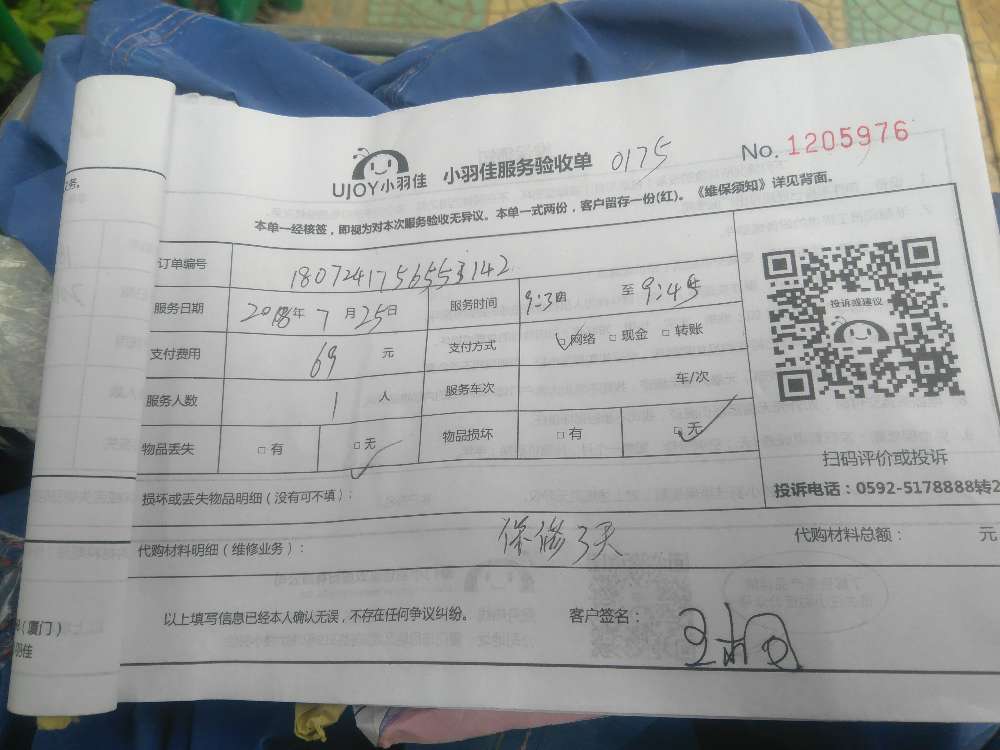 UJOY小羽佳 小羽佳服务验收单 0175 No. 1205976
本单一经核签，即视为对本次服务验收无异议。本单一式两份，客户留存一份(红)。《维保须知》详见背面。
订单编号 1807241756553142
服务日期 2018年7月25日 服务时间 9:30 至 9:45
支付费用 69 元 支付方式 网络 现金 转账
服务人数 1 人 服务车次 车/次
物品丢失 有 无 物品损坏 有 无
投诉或建议
扫码评价或投诉
投诉电话：0592-5178888转2
损坏或丢失物品明细（没有可不填）：
代购材料明细（维修业务）： 保修3天 代购材料总额： 元
以上填写信息已经本人确认无误，不存在任何争议纠纷。 客户签名：
（厦门）
羽佳